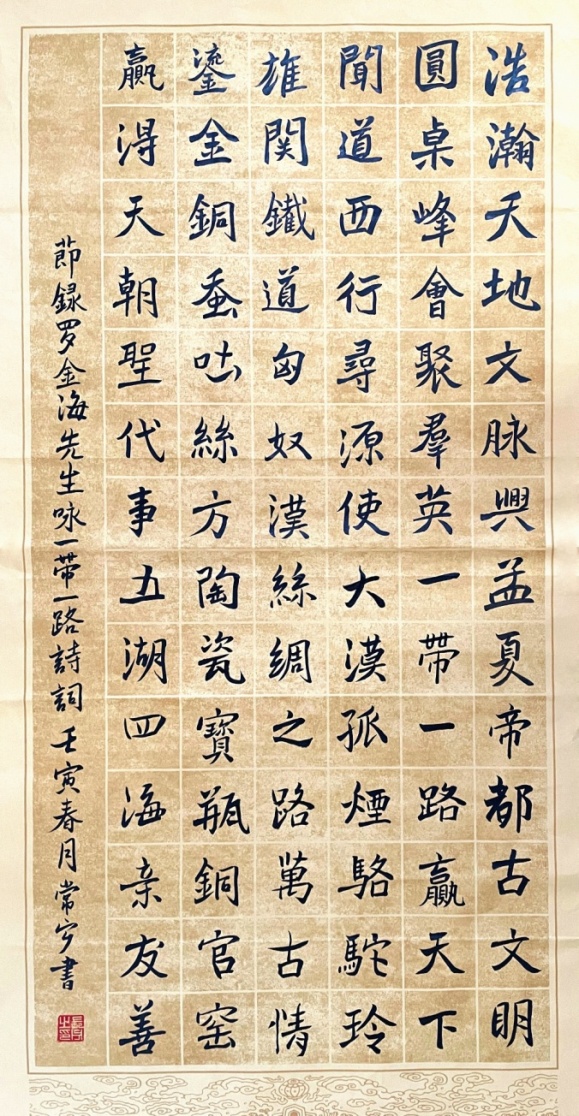 浩瀚天地文脉興孟夏帝都古文明
圓桌峰會聚羣英一帶一路贏天下
聞道西行尋源使大漠孤煙駱駝玲
雄関鐵道匈奴漠絲綢之路萬古情
鎏金銅蚕吐絲方陶瓷寶瓶銅官窑
贏淂天朝聖代事五湖四海亲友善
節録罗金海先生咏一帶一路詩詞 壬寅春月常宁書